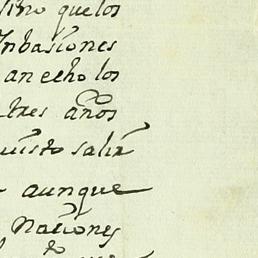 sino que los
Inbasiones
an echo los
tres años
quisto salir
aunque
Naciones
to